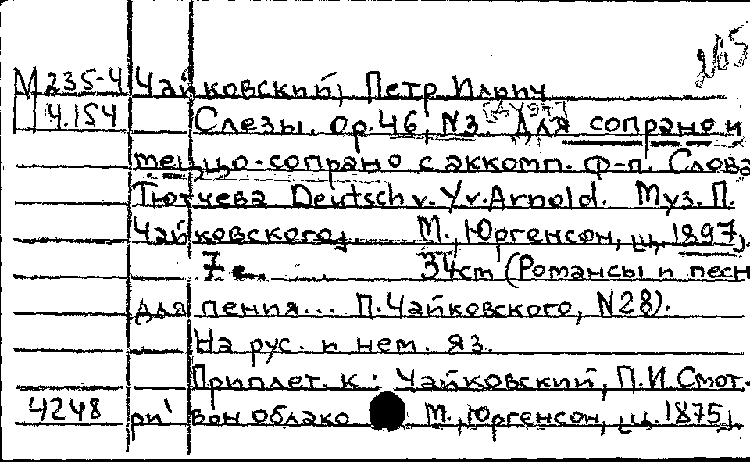 265
М 235-4 Чайковский, Петр Ильич
4.154 Слезы. Op.46, №3. [Дуэт] Для сопрано и
меццо-сопрано с аккомп. ф-п. Слова
Тютчева Deutsch v. Yv. Arnold. Муз. П.
Чайковского. М., Юргенсон, ц. 1897].
7 с. 34cm (Романсы и песн
для пения... П. Чайковского, N28).
На рус. и нем. яз.
Приплет. к: Чайковский, П.И. Смот-
4248 ри' вон облако М., Юргенсон, ц. 1875].